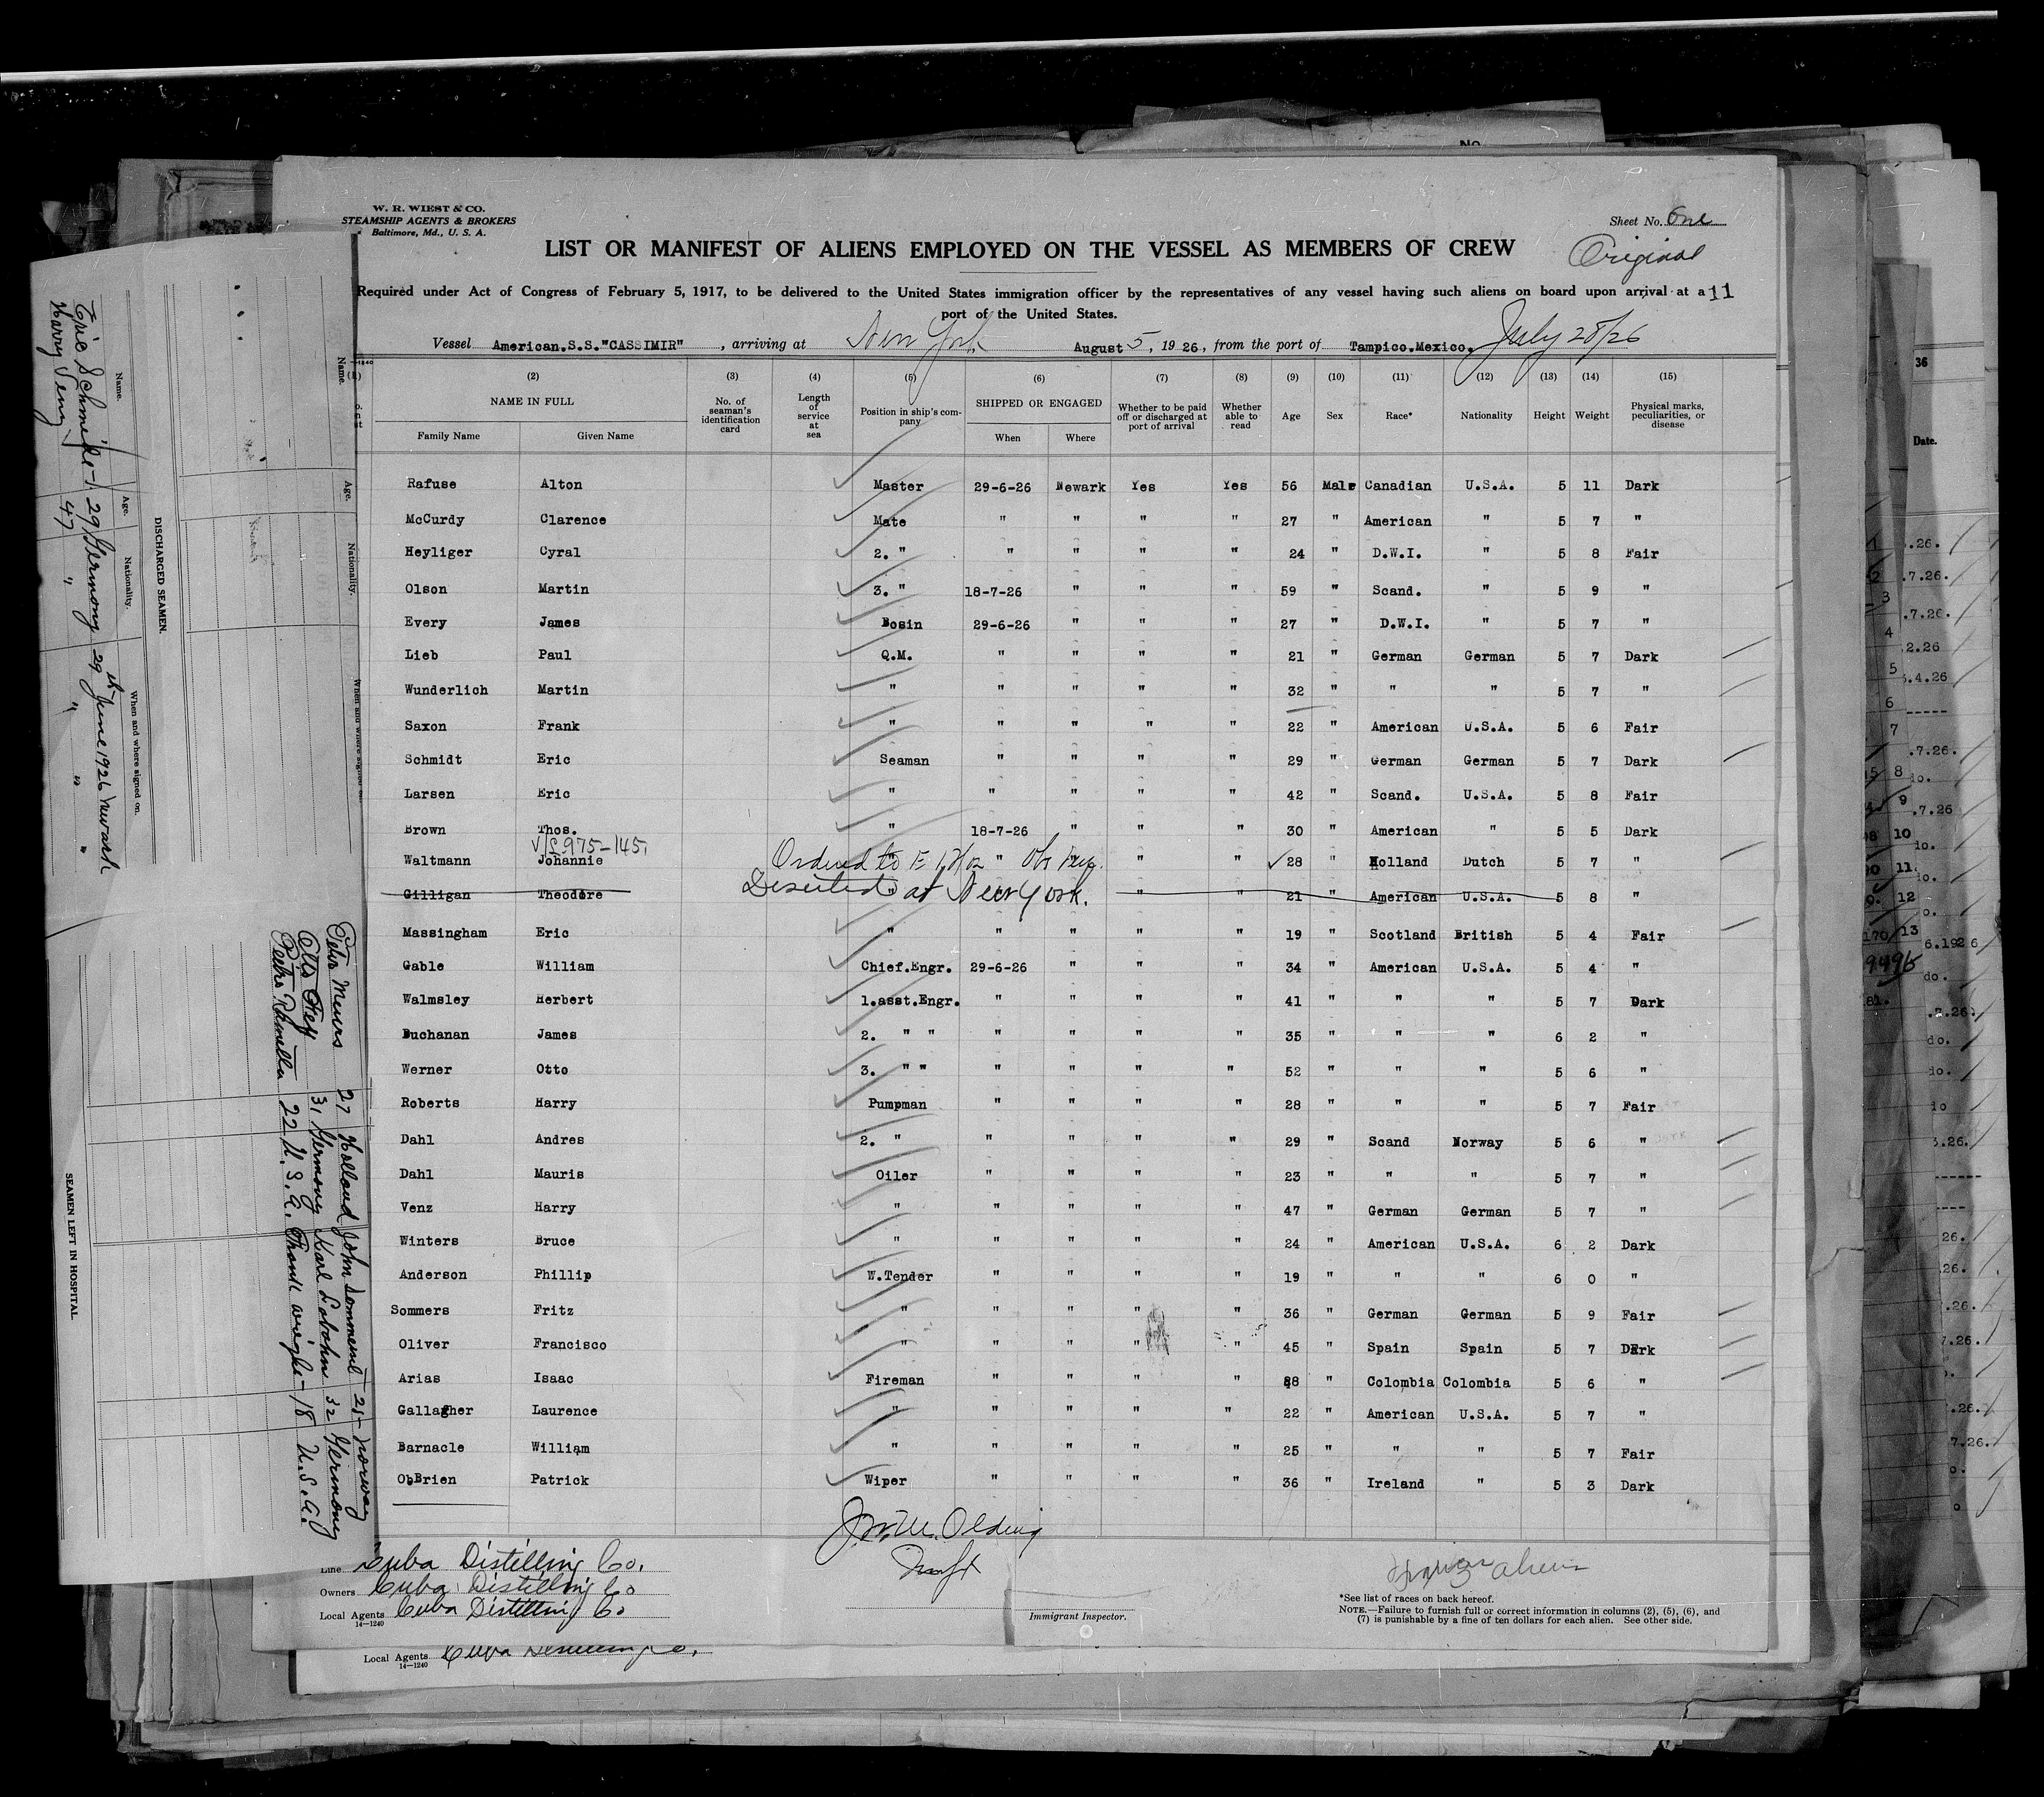 W. R. WIEST & CO.
STEAMSHIP AGENTS & BROKERS
Baltimore, Md., U. S. A.
Sheet No. One
Original
LIST OR MANIFEST OF ALIENS EMPLOYED ON THE VESSEL AS MEMBERS OF CREW
Required under Act of Congress of February 5, 1917, to be delivered to the United States immigration officer by the representatives of any vessel having such aliens on board upon arrival at a 11
port of the United States.
Vessel American.S.S."CASSIMIR" , arriving at New York August 5, 1926, from the port of Tampico.Mexico. July 28/26
(2) (3) (4) (5) (6) (7) (8) (9) (10) (11) (12) (13) (14) (15)
NAME IN FULL No. of seaman's identification card Length of service at sea Position in ship's company SHIPPED OR ENGAGED Whether to be paid off or discharged at port of arrival Whether able to read Age Sex Race* Nationality Height Weight Physical marks, peculiarities, or disease
Family Name Given Name When Where
Rafuse Alton Master 29-6-26 Newark Yes Yes 56 Male Canadian U.S.A. 5 11 Dark
McCurdy Clarence Mate " " " " 27 " American " 5 7 "
Heyliger Cyral 2. " " " " " 24 " D.W.I. " 5 8 Fair
Olson Martin 3. " 18-7-26 " " " 59 " Scand. " 5 9 "
Every James Bosin 29-6-26 " " " 27 " D.W.I. " 5 7 "
Lieb Paul Q.M. " " " " 21 " German German 5 7 Dark
Wunderlich Martin " " " " " 32 " " " 5 7 "
Saxon Frank " " " " " 22 " American U.S.A. 5 6 Fair
Schmidt Eric Seaman " " " " 29 " German German 5 7 Dark
Larsen Eric " " " " " 42 " Scand. U.S.A. 5 8 Fair
Brown Thos. " 18-7-26 " " " 30 " American " 5 5 Dark
975-145
Waltmann Johannie Ordered to E I " " " 28 " Holland Dutch 5 7 "
Gilligan Theodore Deserted at New York. " " 21 American U.S.A. 5 8 "
Massingham Eric " " " " " 19 " Scotland British 5 4 Fair
Gable William Chief.Engr. 29-6-26 " " " 34 " American U.S.A. 5 4 "
Walmsley Herbert 1.asst.Engr. " " " " 41 " " " 5 7 Dark
Buchanan James 2. " " " " " " 35 " " " 6 2 "
Werner Otto 3. " " " " " " 52 " " " 5 6 "
Roberts Harry Pumpman " " " " 28 " " " 5 7 Fair
Dahl Andres 2. " " " " " 29 " Scand Norway 5 6 "
Dahl Mauris Oiler " " " " 23 " " " 5 7 "
Venz Harry " " " " " 47 " German German 5 7 "
Winters Bruce " " " " " 24 " American U.S.A. 6 2 Dark
Anderson Phillip W.Tender " " " " 19 " " " 6 0 "
Sommers Fritz " " " " " 36 " German German 5 9 Fair
Oliver Francisco " " " " " 45 " Spain Spain 5 7 Dark
Arias Isaac Fireman " " " " " Colombia Colombia 5 6 "
Gallagher Laurence " " " " " 22 " American U.S.A. 5 7 "
Barnacle William " " " " " 25 " " " 5 7 Fair
O.Brien Patrick Wiper " " " " 36 " Ireland " 5 3 Dark
Line Cuba Distilling Co.
Owners Cuba Distilling Co
Local Agents Cuba Distilling Co
14—1240
Immigrant Inspector.
*See list of races on back hereof.
NOTE.—Failure to furnish full or correct information in columns (2), (5), (6), and
(7) is punishable by a fine of ten dollars for each alien. See other side.
Local Agents
14—1240
DISCHARGED SEAMEN.
Name. Age. Nationality. When and where signed on.
Eric Schmidt 29 Germany 29th June 1926 Newark
Harry Venz 47 " " " "
Name. Age. Nationality. When and where signed on.
Peter Meurs 27 Holland John Sommersel 25 Norway
Otto 31 Germany Karl 32 Germany
22 U.S.A. 18 U.S.A.
SEAMEN LEFT IN HOSPITAL.
36
Date.